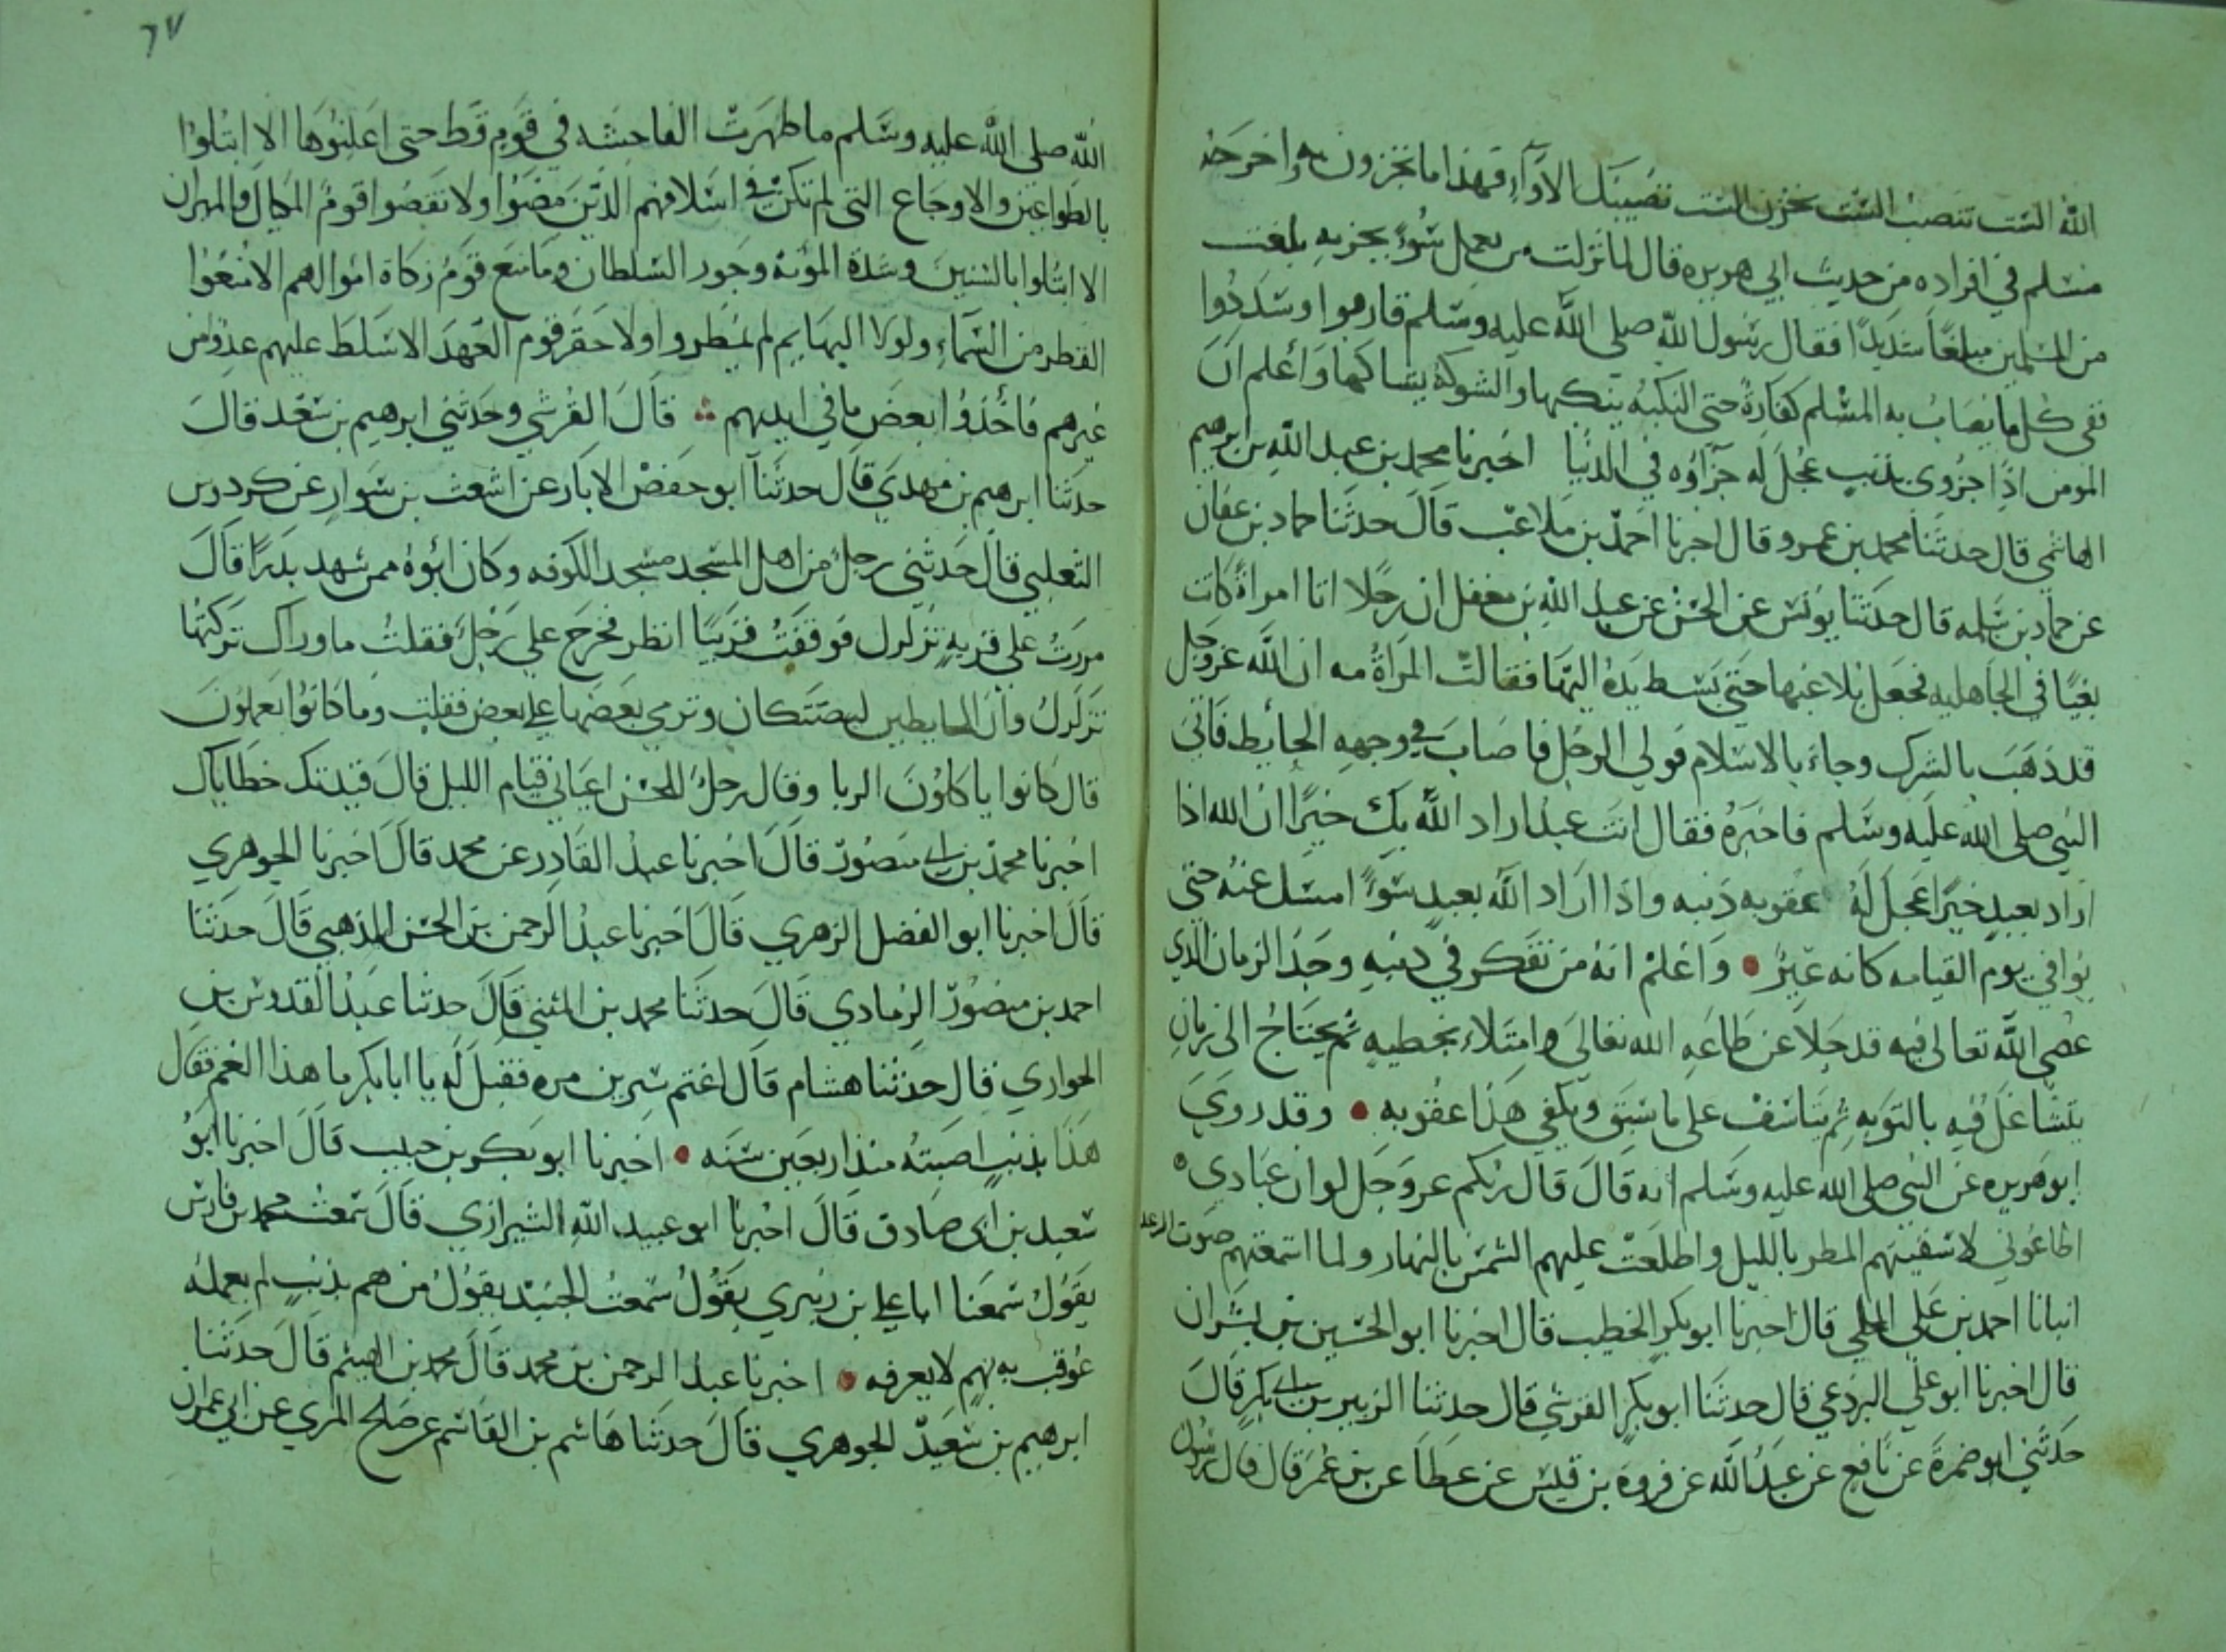 الله الست تنصب الست تحزن الست تصيبك الأوآء فهذا ما تجزون به واخرجه
مسلم في افراده من حديث ابي هريره قال لما نزلت من يعمل سُوءً يجز به بلغت
من المسلمين مبلغًا شديدًا فقال رسول الله صلى الله عليه وسلم قاربوا وسَدِّدُوا
ففي كل ما يصاب به المسلم كفارةٌ حتى النكبه ينكبها والشوكة يشاكها وَأعلم ان
المومن اذا جُزوى بذنبٍ عُجل له جزآؤه في الدنيا اخبرنا محمد بن عبد الله بن ابرهيم
الهاشمي قال حدثنا محمد بن عمرو قال اخبرنا احمد بن ملاعب قال حدثنا حماد بن عفان
عن حماد بن سلمه قال حدثنا يونس عن الحسن عن عبد الله بن مغفل ان رجلا اتا امراةً كانت
بغيًا في الجاهليه فجعل يُلاعبها حتى بسط يَدهُ اليها فقالت المرأةُ مه ان الله عز وجل
قد ذهَبَ بالشرك وجاءَ بالاسلام فولى الرجل فاصَابَ في وجهه الحايط فاتىَ
النبي صلى الله عليه وسلم فاخبَرهُ فقال انت عبد اراد الله بك خيرًا ان الله اذا
اراد بعبدٍ خيرًا عجل لَهُ عقوبه ذنبه واذا اراد الله بعبدٍ سُوءً امسك عنه حتى
يُوافي يوم القيامه كانه عَيْرٌ • وَاعلمْ انهُ من تفكر في ذنبهِ وجَدَ الزمان الذي
عصى الله تعالى فيه قد خلا عن طاعَهِ الله تعالى وامتلاء بخطيه ثم يحتاج الى زمانٍ
يتشاغل فيه بالتوبه ثم يتاسف على ما سبق ويكفي هَذا عقوبه • وقد روىَ
ابو هريره عن النبي صلى الله عليه وسلم انه قال قال ربكم عز وجل لو ان عبَادي
اطاعُوني لاسقيتهم المطر بالليل واطلعت عليهم الشمس بالنهار ولما اسمعتهم صَوت الرعد
انبانا احمد بن علي المجلي قال اخبرنا ابو بكر الخطيب قال اخبرنا ابو الحسين بن بشران
قال اخبرنا ابو علي البرذعي قال حدثنا ابو بكر القرشي قال حدثنا الزبير بن ابى بكر قال
حدثني ابو ضمرةَ عن نافع عن عبدُ الله عن فروة بن قيس عن عطَا عن بن عُمَر قال قال رسُول
٦٧
الله صلى الله عليه وسَلم ما ظهَرتْ الفاحشه في قَومٍ قط حتى اعلنُوها الا ابتلوا
بالطواعين والاوجاع التى لم تكن في اسلافهم الذين مضَوْا ولا نقصُوا قومٌ المكيال والميزان
الا ابتلوا بالسنين وشدة المؤنه وجَور السلطان وما منع قومٌ زكاة اموالهم الا مُنعُوا
القطر من السماءِ ولولا البهايم لم يُمطروا ولا خفر قوم العَهدَ الا سَلط عليهم عدو من
غيرهم فاخُذوُا بعض ما في ايديهم ∴ قال القرشي وحدثني ابرهيم بن سعد قال
حدثنا ابرهيم بن مهدي قال حدثنا ابو حفص الابار عن اشعث بن سَوار عن كردوس
الثعلبي قال حدثني رجل من اهل المسجد مسجد الكوفه وكان ابُوهُ ممن شهد بدرًا قال
مررت على قريهٍ تزلزل فوقفت قريبًا انظر فخرَجَ علي رَجلٌ فقلتُ ما وراك تركتها
تزلزل وان الحايطين ليصتكان ويُرمي بعَضها على بعضٍ فقلت وما كانوُا يَعملونَ
قال كانوا ياكلونَ الربا وقال رجلٌ للحسن اعياني قيام الليل قال قيدتك خطاياك
اخبرنا محمد بن ابى منصور قال اخبرنا عبد القادر عن محمد قال اخبرنا الجوهري
قال اخبرنا ابو الفضل الزهري قال اخبرنا عبد الرحمن بن الحسن المذهبي قال حدثنا
احمد بن منصور الرمادي قال حدثنا محمد بن المثنى قال حدثنا عبد القدوس بن
الحواري قال حدثنا هشام قال اغتم سيرين مره فقيل له يا ابا بكر ما هذا الغم فقال
هذا بذنبٍ اصبتهُ منذ اربعين سَنَه • اخبرنا ابو بكر بن حبيب قال اخبرنا ابوُ
سَعيد بن ابى صادق قال اخبرنا ابو عبيد الله الشيرازي قال سمعتُ محمد بن فارس
يقوُلُ سمعنا ابا علي بن زيري يقوُلُ سَمعتُ الجنيد يقوُلُ من هم بذنبٍ لم يعملهُ
عوقب بهم لا يعرفه • اخبرنا عبد الرحمن بن محمد قال محمد بن الهيثم قال حدثنا
ابرهيم بن سَعيد الجوهري قال حدثنا هاشم بن القاسم عن صلح المري عن ابي عمران